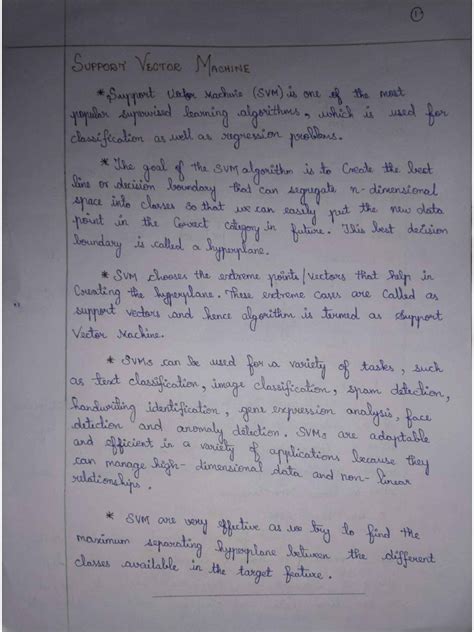 1
SUPPORT VECTOR MACHINE
* Support Vector Machine (SVM) is one of the most
popular supervised learning algorithms, which is used for
classification as well as regression problems.
* The goal of the SVM algorithm is to Create the best
line or decision boundary that can segregate n-dimensional
space into classes so that we can easily put the new data
point in the Correct category in future. This best decision
boundary is called a hyperplane.
* SVM chooses the extreme points/vectors that help in
Creating the hyperplane. These extreme cases are Called as
support vectors and hence algorithm is termed as Support
Vector Machine.
* SVMs can be used for a variety of tasks, such
as text classification, image classification, spam detection,
handwriting identification, gene expression analysis, face
detection and anomaly detection. SVMs are adaptable
and efficient in a variety of applications because they
can manage high-dimensional data and non-linear
relationships.
* SVM are very effective as we try to find the
maximum separating hyperplane between the different
classes available in the target feature.